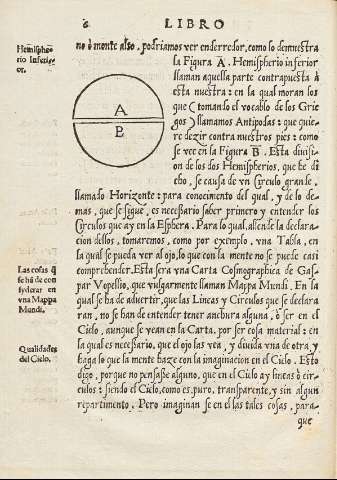 6 LIBRO
Hemispherio Inferior.
no ò mente also, podriamos ver enderredor, como lo demuestra
la Figura A. Hemispherio inferior
llaman aquella parte contrapuesta à
esta nuestra: en la qual moran los
que (tomando el vocablo de los Griegos
) llamamos Antipodas: que quiere
dezir contra nuestros pies: como
se vee en la Figura B. Esta division
de los dos Hemispherios, que he dicho,
se causa de vn Circulo grande,
A
B
llamado Horizonte: para conocimiento del qual, y de lo demas,
que se sigue, es necessario saber primero y entender los
Circulos que ay en la Esphera. Para lo qual, allende la declaracion
dellos, tomaremos, como por exemplo, vna Tabla, en
la qual se pueda ver al ojo, lo que con la mente no se puede casi
comprehender. Esta sera vna Carta Cosmographica de Gaspar
Vopellio, que vulgarmente llaman Mappa Mundi. En la
Las cosas q̃
se hã de considerar en
vna Mappa
Mundi.
qual se ha de advertir, que las Lineas y Circulos que se declararan,
no se han de entender tener anchura alguna, ò ser en el
Cielo, aunque se vean en la Carta, por ser cosa material: en
la qual es necessario, que el ojo las vea, y diuida vna de otra, y
Qualidades
del Cielo.
haga lo que la mente haze con la imaginacion en el Cielo. Esto
digo, porque no pensasse alguno, que en el Cielo ay lineas ò circulos:
siendo el Cielo, como es, puro, transparente, y sin algun
repartimento. Pero imaginan se en el las tales cosas, para
que